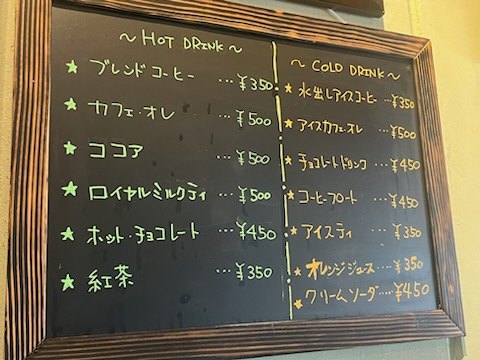 ～HOT DRINK～
★ ブレンドコーヒー …¥350
★ カフェ・オレ …¥500
★ ココア …¥500
★ ロイヤルミルクティ …¥500
★ ホット・チョコレート …¥450
★ 紅茶 …¥350
～COLD DRINK～
★ 水出しアイスコーヒー …¥350
★ アイスカフェ・オレ …¥500
★ チョコレートドリンク …¥450
★ コーヒーフロート …¥450
★ アイスティ …¥350
★ オレンジジュース …¥350
★ クリームソーダ……¥450